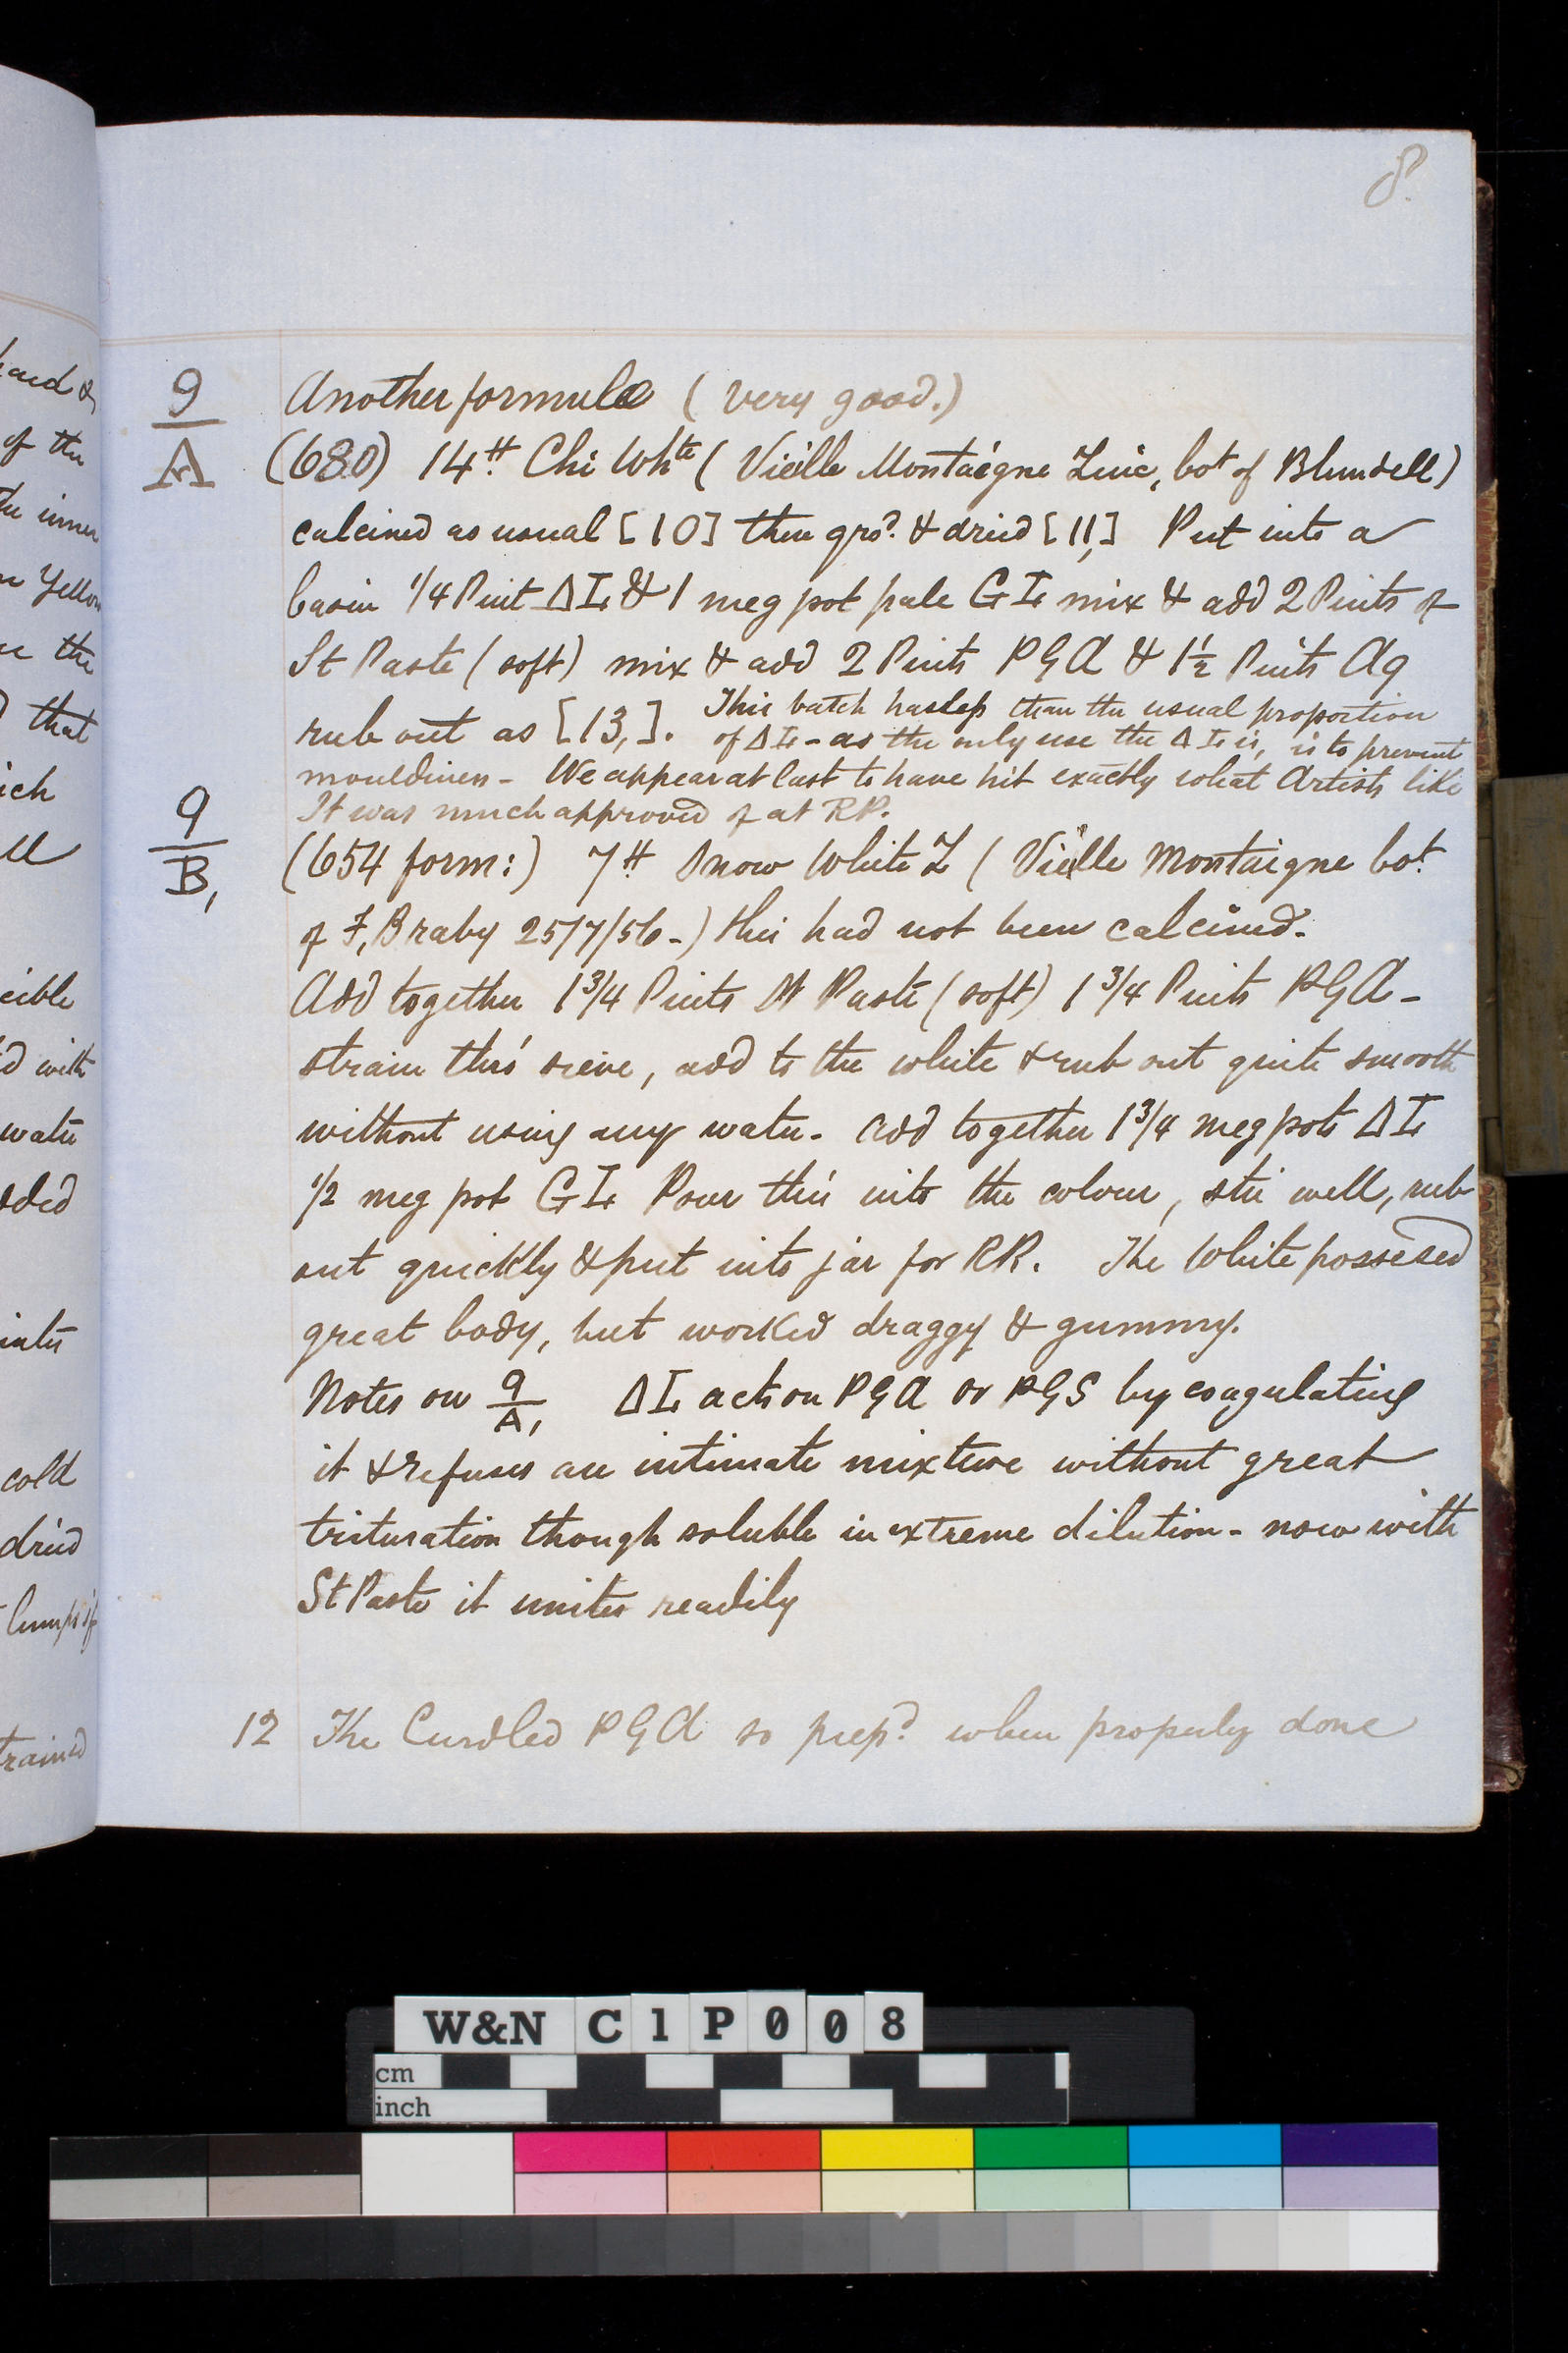 8.
9/A Another formula (very good.)
(680) 14 ℔ Chi Whte (Vieille Montaigne Zinc, bot of Blundell)
calcined as usual [10] then grd. & dried [11,] Put into a
basin 1/4 Pint ΔI & 1 meg pot pale GI mix & add 2 Pints of
St Paste (soft) mix & add 2 Pints PGA & 1½ Pints Aq
rub out as [13,]. This batch has less than the usual proportion
of ΔI - as the only use the ΔI is, is to prevent
mouldiness - We appear at last to have hit exactly what Artists like
It was much approved of at RP.
9/B, (654 form:) 7 ℔ Snow White Z (Vieille Montaigne bot.
of F, Braby 25/7/56-) this had not been calcined.
Add together 1 3/4 Pints St Paste (soft) 1 3/4 Pints PGA -
strain thro' sieve, add to the white & rub out quite smooth
without using any water. add together 1 3/4 meg pots ΔI
1/2 meg pot GI Pour this into the colour, stir well, rub
out quickly & put into jar for RR. The White possesed
great body, but worked draggy & gummy.
Notes on 9/A, ΔI acts on PGA or PGS by coagulating
it & refuses an intimate mixture without great
trituration though soluble in extreme dilution - now with
St Paste it unites readily
12 The Curdled PGA so prepd. when properly done
hard &
of the
the inner
Yellow
the
that
ich
ll
cible
d with
water
dded
cold
dried
lumps if
trained
W&N C1P008
cm
inch